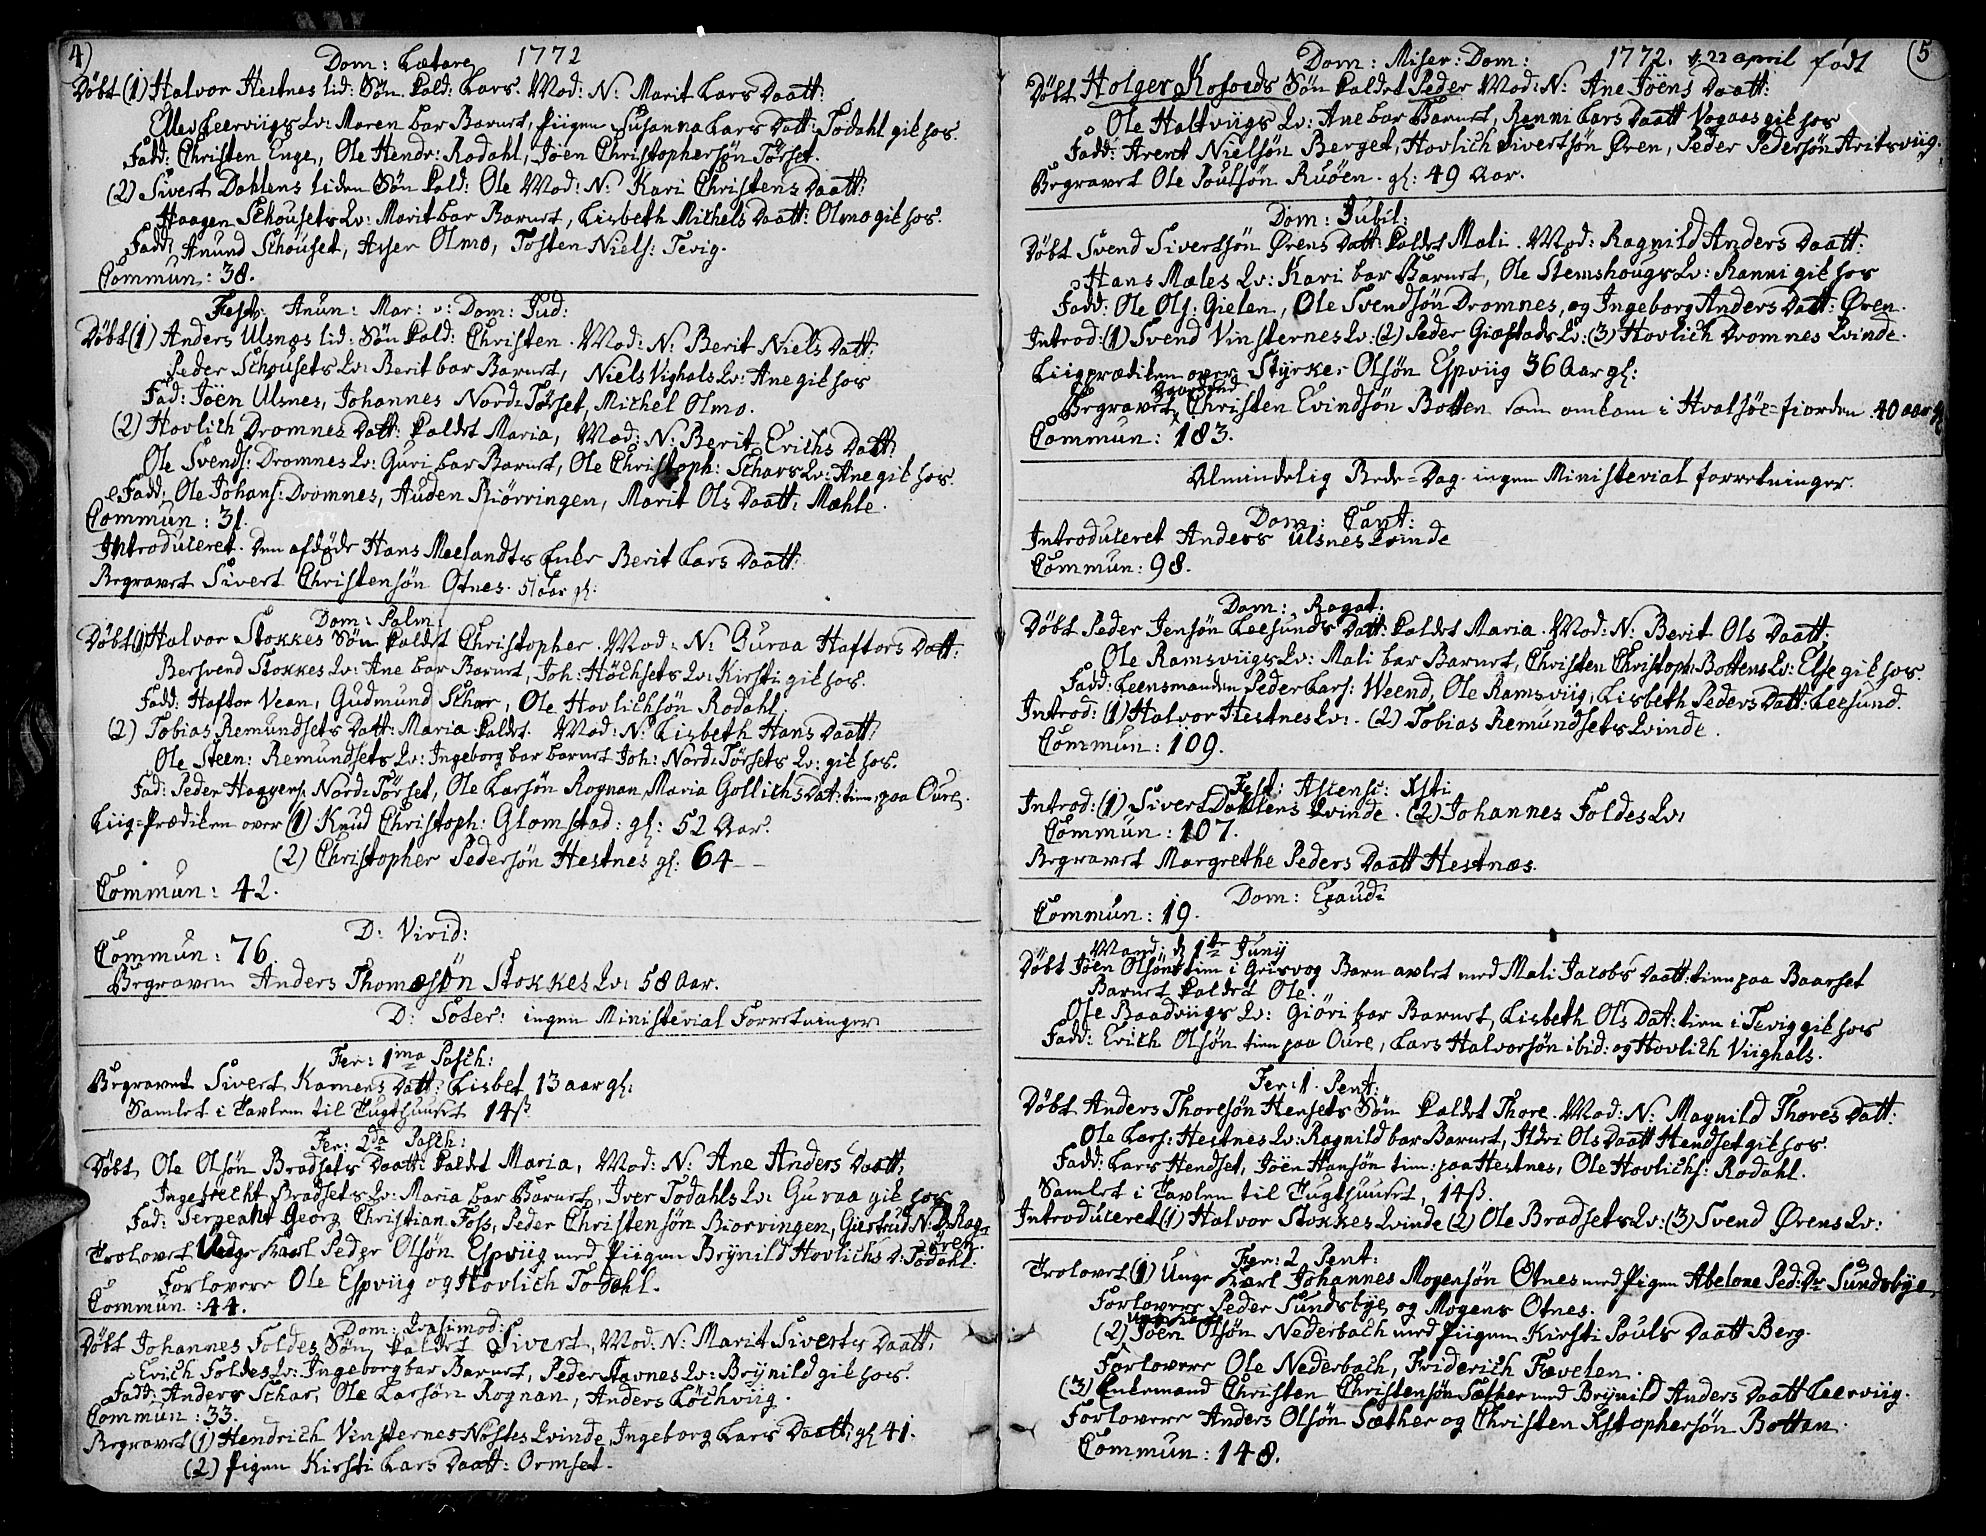 4)
Dom: Lætare 1772
Døbt (1) Halvor Hestnes lid: Søn kald: Lars. Mod: N: Marit Lars Daatt:
Ellev Leerviigs Qv: Maren bar Barnet, Piigen Susanna Lars Datt: Todahl gik hos.
Fadd: Christen Enge, Ole Hendr: Rodahl, Jöen Christophersön Törset.
(2) Sivert Dahlens liden Søn kald: Ole Mod: N: Kari Christens Daatt:
Haagen Schousets Qv: Marit bar Barnet, Lisbeth Michels Daatt: Olmo gik hos.
Fadd: Anund Schouset, Asser Olmo, Tosten Niels: Tevig.
Commun: 38.
Fest: Anun: Mar: v: Dom: Jud:
Døbt (1) Anders Ulsnes lid: Søn kald: Christen. Mod: N: Berit Niels Datt:
Peder Schousets Qv: Berit bar Barnet, Niels Vighals Qv: Ane gik hos
Fad: Jöen Ulsnes, Johannes Nord-Törset, Michel Olmo.
(2) Hovlich Dromnes Datt: kaldet Maria, Mod: N: Berit Erichs Datt:
Ole Svends: Dromnes Qv: Guri bar Barnet, Ole Christoph: Schars Qv: Ane gik hos.
Fadd: Ole Johans: Dromnes, Auden Kiörringen, Marit Ols Daatt: Mæhle.
Commun: 31.
Introduceret. Den afdøde Hans Meelandts Enke Berit Lars Daatt:
Begravet Sivert Christensön Otnes. 51 aar gl:
Dom: Palm:
Døbt (1) Halvor Stokkes Søn kaldet Christopher. Mod: N: Guraa Haftors Datt:
Bersvend Stokkes Qv: Ane bar Barnet, Joh: Höchsets Qv: Kirsti gik hos.
Fadd: Haftor Vean, Gudmund Schar, Ole Hovlichsön Rodahl.
(2) Tobias Remundsets Datt: Maria kaldet. Mod: N: Lisbeth Hans Daatt:
Ole Steen: Remundsets Qv: Ingeborg bar barnet Joh: Nord-Törsets Qv: gik hos.
Fad: Peder Haagens: Nord-Törset, Ole Larsön Rognan, Maria Gollichs Dat: tien: paa Oure.
Liig-Prædiken over (1) Knud Christoph: Glomstad: gl: 52 Aar.
(2) Christopher Pedersön Hestnes gl: 64
Commun: 42.
D: Virid:
Commun: 76.
Begraven Anders Thomæsön Stokkes Qv: 58 Aar.
D: Soter: ingen Ministerial Forretninger
Fer: 1ma Pasch:
Begravet Sivert Kamens Datt: Lisbet 13 aar gl:
Samlet i Tavlen til Tugthuuset 14ß
Fer: 2da Pasch:
Døbt Ole Olsön Bradsets Daatt: kaldet Maria, Mod: N: Ane Anders Daatt:
Ingebrecht Bradsets Qv: Maria bar Barnet, Iver Todahls Qv: Guraa gik hos
Fad: Sergeant Georg Christian Foss, Peder Christensön Biorvingen, Giertrud N: D: Rog-
Ören.
Trolovet Unge Karl Peder Olsön Espviig med Piigen Brÿnild Hovlichs D: Todahl.
Forlovere Ole Espviig og Hovlich Todahl.
Commun: 44.
Dom: Qvasimod:
Døbt Johannes Foldes Søn kaldet Sivert, Mod: N: Marit Siverts Daatt:
Erich Foldes Qv: Ingeborg bar Barnet, Peder Stavnes Qv: Brÿnild gik hos.
Fadd: Anders Schar, Ole Larsön Rognan, Anders Löchviig.
Commun: 33.
Begravet (1) Hendrich Vinsternes Nöstes Qvinde Ingeborg Lars Daatt: gl 41.
(2) Pigen Kirsti Lars Daatt: Ormset.
Dom: Miser: Dom: 1772. d. 22 april født (5
Døbt Holger Kofoeds Søn kaldet Peder Mod: N: Ane Jöens Daatt:
Ole Haltviigs Qv: Ane bar Barnet, Ranni Lars Daatt Vogaas gik hos
Fadd: Arent Nielsön Berget, Hovlich Sivertsön Øren, Peder Pedersön Aritsviig.
Begravet Ole Poulsön Ruöen. gl: 49 Aar.
Dom: Jubil:
Døbt Svend Sivertsön Ørens Datt: kaldet Mali. Mod: Ragnild Anders Daatt:
Hans Mæles Qv: Kari bar Barnet, Ole Stemshougs Qv: Ranni gik hos
Fadd: Ole Ols: Gielen, Ole Svendsön Dromnes, og Ingeborg Anders Datt: Øren.
Introd: (1) Svend Vinsternes Qv: (2) Peder Giæstads Qv: (3) Hovlich Dromnes Qvinde.
Liigprædiken over Styrker Olsön Espviig 36 Aar gl:
Begravet Christen Evindsön Botten som omkom i Hvalsöe-fiorden. 40 aar gl
Commun: 183.
Almindelig Bede-Dag. ingen Ministerial forretninger.
Dom: Cant:
Introduceret Anders Ulsnes Qvinde
Commun: 98.
Dom: Rogat.
Døbt Peder Jensön Leesunds Datt: kaldet Maria. Mod: N: Berit Ols Daatt:
Ole Ramsviigs Qv: Mali bar Barnet, Christen Christoph: Bottens Qv: Else gik hos.
Fadd: Leensmanden Peder Lars: Weend, Ole Ramsviig, Lisbeth Peders Datt: Leesund.
Introd: (1) Halvor Hestnes Qv: (2) Tobias Remundsets Qvinde.
Commun: 109.
Fest: Ascens: Xsti
Introd: (1) Sivert Dahlens Qvinde. (2) Johannes Foldes Qv:
Commun: 107.
Begravet Margrethe Peders Daatt Hestnæs.
Dom: Exaudi
Commun: 19.
Mand: d 1te Junij
Døbt Jöen Olsön tien i Grisvog Barn avlet med Mali Jacobs Daatt: tien paa Baarset
Barnet kaldet Ole.
Ole Baadviigs Qv: Giöri bar Barnet, Lisbeth Ols Dat: tien i Tevig gik hos
Fadd: Erich Olsön tien paa Oure, Lars Halvorsön ibid: og Hovlich Viighals.
Fer: 1. Pent:
Døbt Anders Thoresön Hensets Søn kaldet Thore. Mod: N: Magnild Thores Datt:
Ole Lars: Hestnes Qv: Ragnild bar Barnet, Ildri Ols Daatt Hendset gik hos.
Fadd: Lars Hendset, Jöen Hansön tien: paa Hestnes, Ole Hovlichs: Rodahl.
Samlet i Tavlen til Tugthuuset, 14ß.
Introduceret (1) Halvor Stokkes Qvinde (2) Ole Bradsets Qv: (3) Svend Ørens Qv:
Fer: 2 Pent:
Trolovet (1) Unge Karl Johannes Mogensön Otnes med Pigen Abelone Ped: Dr Sundsbÿe
Forlovere Peder Sundsbÿe og Mogens Otnes.
(2) Jöen Olsön Nederbach med Piigen Kirsti Pouls Daatt Berg.
Forlovere Ole Nederbach, Friderich Fævelen.
(3) Enkemand Christen Christensön Sæther med Brÿnild Anders Daatt Leerviig.
Forlovere Anders Olsön Sæther og Christen Xstophersön Botten.
Commun: 148.